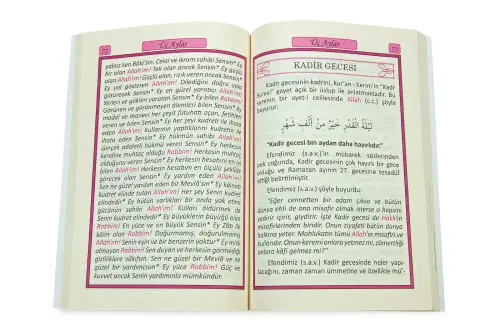 72
Üç Aylar
yalnız Sen Bâkî'sin. Celal ve ikram sahibi Sensin* Ey
bir olan Allah'ım! Tek olan ancak Sensin* Ey güçlü
olan Allah'ım! Güçlü olan, rızık veren ancak Sensin*
Ey yol gösteren Allah'ım! Dilediğini doğru yola
götürecek Sensin* Ey en güzel yaratıcı Allah'ım!
Yerleri ve gökleri yaratan Sensin* Ey bilen Allah'ım!
Görünen ve görünmeyen âlemleri bilen Sensin* Ey
maddi ve manevi her çeşit fütuhatı açan, Settarı
veren ve bilen Sensin* Ey her şeyi kudreti ile ihata
eden Allah'ım! Kullarının yaptıklarını kudretin ile
ihata eden Sensin* Ey hükmün sahibi Allah'ım!
Gerçek adaletli hükmü veren Sensin* Ey herkesin
kendine muhtaç olduğu Rabbim! Herkesin muhtaç
olduğunu veren Sensin* Ey herkesin hesabını en iyi
bilen Allah'ım! Herkesin hesabını en ölçülü şekilde
görecek olan Sensin* Ey yardım eden Allah'ım!
Sen ne güzel yardım eden bir Mevlâ'sın* Ey kâinatı
kudret elinde tutan Allah'ım! Her şey Senin kudret
elindedir* Ey bütün varlıkları bir anda yok etme
gücünün sahibi Allah'ım! Kulları öldüren de
Senin kudret elindedir* Ey büyüklerin büyüğü olan
Rabbim! Ey yüce ve en büyük Sensin* Ey Zâtı ile
kâim olan Rabbim! Doğurmamış, doğurulmamış
Allah'ım! Senin eşin ve bir benzerin yoktur* Ey misli
olmayan Rabbim! Sen duyan ve herkesin görmediği
gizliliklere vâkıfsın. Sen ne güzel bir Mevlâ ve ne
güzel bir yardımcısın* Ey yüce Rabbim! Güç ve
kuvvet ancak Senin yardımınla mümkündür.
Üç Aylar
73
KADİR GECESİ
Kadir gecesinin kadrini, Kur'an-ı Kerim'in "Kadr
Suresi" gayet açık bir üslup ile anlatmaktadır. Bu
surenin bir ayet-i celilesinde Allah (c.c.) şöyle
buyurur:
لَيْلَةُ الْقَدْرِ خَيْرٌ مِنْ أَلْفِ شَهْرٍ
"Kadir gecesi bin aydan daha hayırlıdır."
Efendimiz (s.a.v.)'in mübarek sözlerinden
pek çoğunda, Kadir gecesinin çok hayırlı bir gece
olduğu ve Ramazan ayının 27. gecesine tesadüf
ettiği belirtilmiştir.
Efendimiz (s.a.v.) şöyle buyurdu:
"Eğer cennetten bir adam çıksa ve bütün
dünya ehli de ona misafir olmak isterse o hepsini
yedirir içirir, giydirir. İşte Kadir gecesi de Hakk'ın
misafirlerinden biridir. Onun ziyafeti bütün dünya
halkına yeter. Mahlukatın tümü Allah'ın misafiri ve
kullarıdır. Onun keremi onlara yetmez mi, cömertliği
onlara kâfi gelmez mi?"
Efendimiz (s.a.v.) Kadir gecesinde neler yapı-
lacağını, zaman zaman ümmetine ve özellikle mü'-